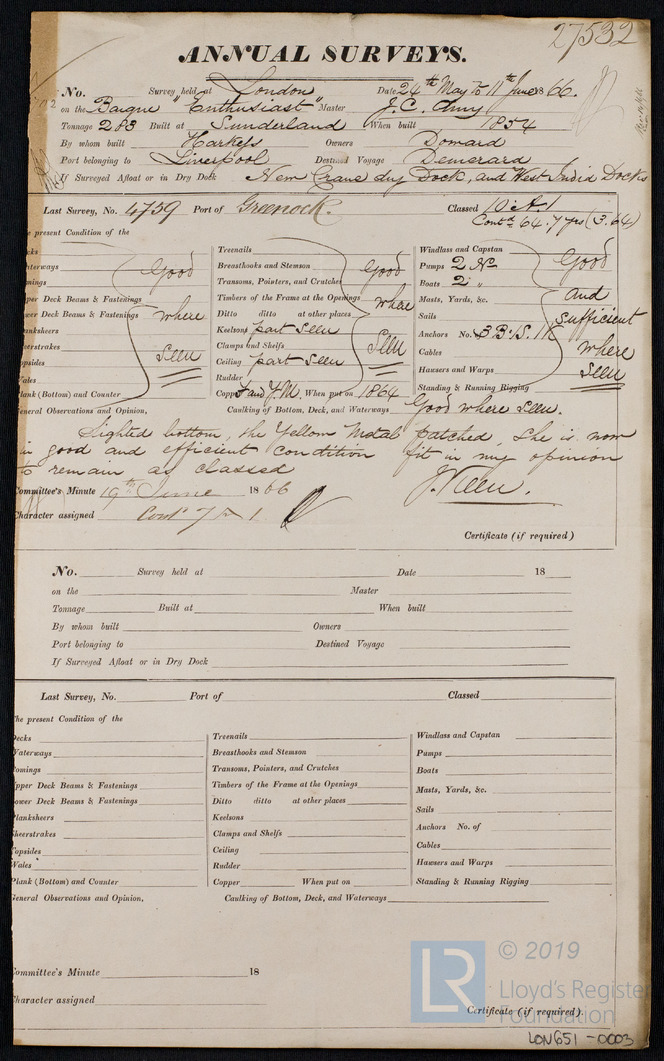 27532
ANNUAL SURVEYS.
No. Survey held at London Date 24th May to 11th June 1866.
on the Barque "Enthusiast" Master J. C.
Tonnage 283 Built at Sunderland When built 1854
By whom built Owners
Port belonging to Liverpool Destined Voyage Demerara
If Surveyed Afloat or in Dry Dock New Crane dry Dock, and West India Docks
Last Survey, No. 4759 Port of Greenock. Classed 10 A.1
Contd 64. 7 yrs (3.64)
present Condition of the
Good where Seen
per Deck Beams & Fastenings
wer Deck Beams & Fastenings
Plank (Bottom) and Counter
Treenails
Breasthooks and Stemson
Transoms, Pointers, and Crutches
Timbers of the Frame at the Openings
Ditto ditto at other places
Keelsons part seen
Clamps and Shelfs
Ceiling part seen
Rudder
Good where Seen
Copper and Y.M. When put on 1864
Windlass and Capstan
Pumps 2 No
Boats 2 "
Masts, Yards, &c.
Sails
Anchors No. 3.B. 1.S. 1K
Cables
Hawsers and Warps
Standing & Running Rigging
Good and sufficient where Seen
General Observations and Opinion, Caulking of Bottom, Deck, and Waterways Good where seen.
Sighted bottom, the Yellow Metal patched, She is now
in good and efficient condition fit in my opinion
to remain as classed
Committee's Minute 19th June 1866
Character assigned Contd 7 A 1
Certificate (if required)
No. Survey held at Date 18
on the Master
Tonnage Built at When built
By whom built Owners
Port belonging to Destined Voyage
If Surveyed Afloat or in Dry Dock
Last Survey, No. Port of Classed
The present Condition of the
Decks
Waterways
Comings
Upper Deck Beams & Fastenings
Lower Deck Beams & Fastenings
Planksheers
Sheerstrakes
Topsides
Wales
Plank (Bottom) and Counter
Treenails
Breasthooks and Stemson
Transoms, Pointers, and Crutches
Timbers of the Frame at the Openings
Ditto ditto at other places
Keelsons
Clamps and Shelfs
Ceiling
Rudder
Copper When put on
Windlass and Capstan
Pumps
Boats
Masts, Yards, &c.
Sails
Anchors No. of
Cables
Hawsers and Warps
Standing & Running Rigging
General Observations and Opinion, Caulking of Bottom, Deck, and Waterways
Committee's Minute 18
Character assigned
Certificate (if required).
LR © 2019
Lloyd's Register
Foundation
LON651-0003